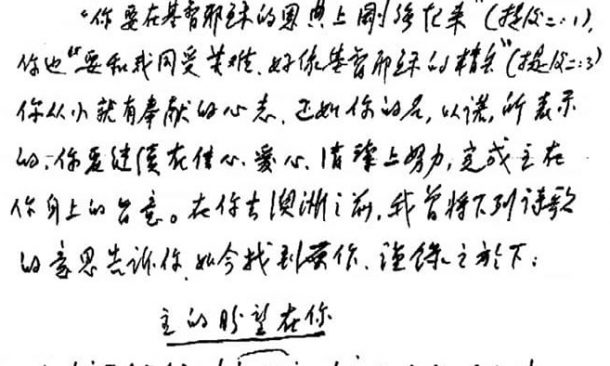 “你要在基督耶稣的恩典上刚强起来”(提后二:1),
你也“要和我同受苦难,好像基督耶稣的精兵”(提后二:3)
你从小就有奉献的心志,正如你的名,以诺,所表示
的:你要继续在信心、爱心、清洁上努力,完成主在
你身上的旨意。在你去澳洲之前,我曾将下列诗歌
的意思告诉你,如今找到原作,谨录之於下:
主的盼望在你